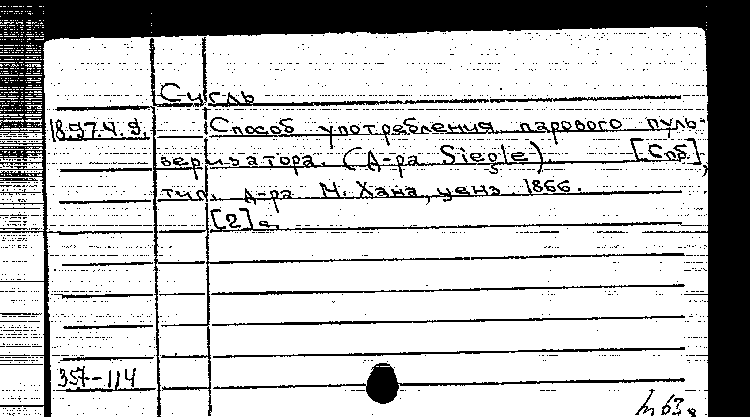 Сигль
18.57.4.9. Способ употребления парового пуль-
веризатора. (Д-ра Siegle). [Спб],
тип. Д-ра М. Хана, ценз. 1866.
[2] с.
357-114